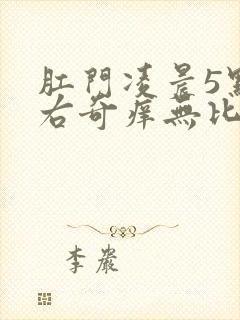 肛門凌晨5點
右奇癢無比
李嚴